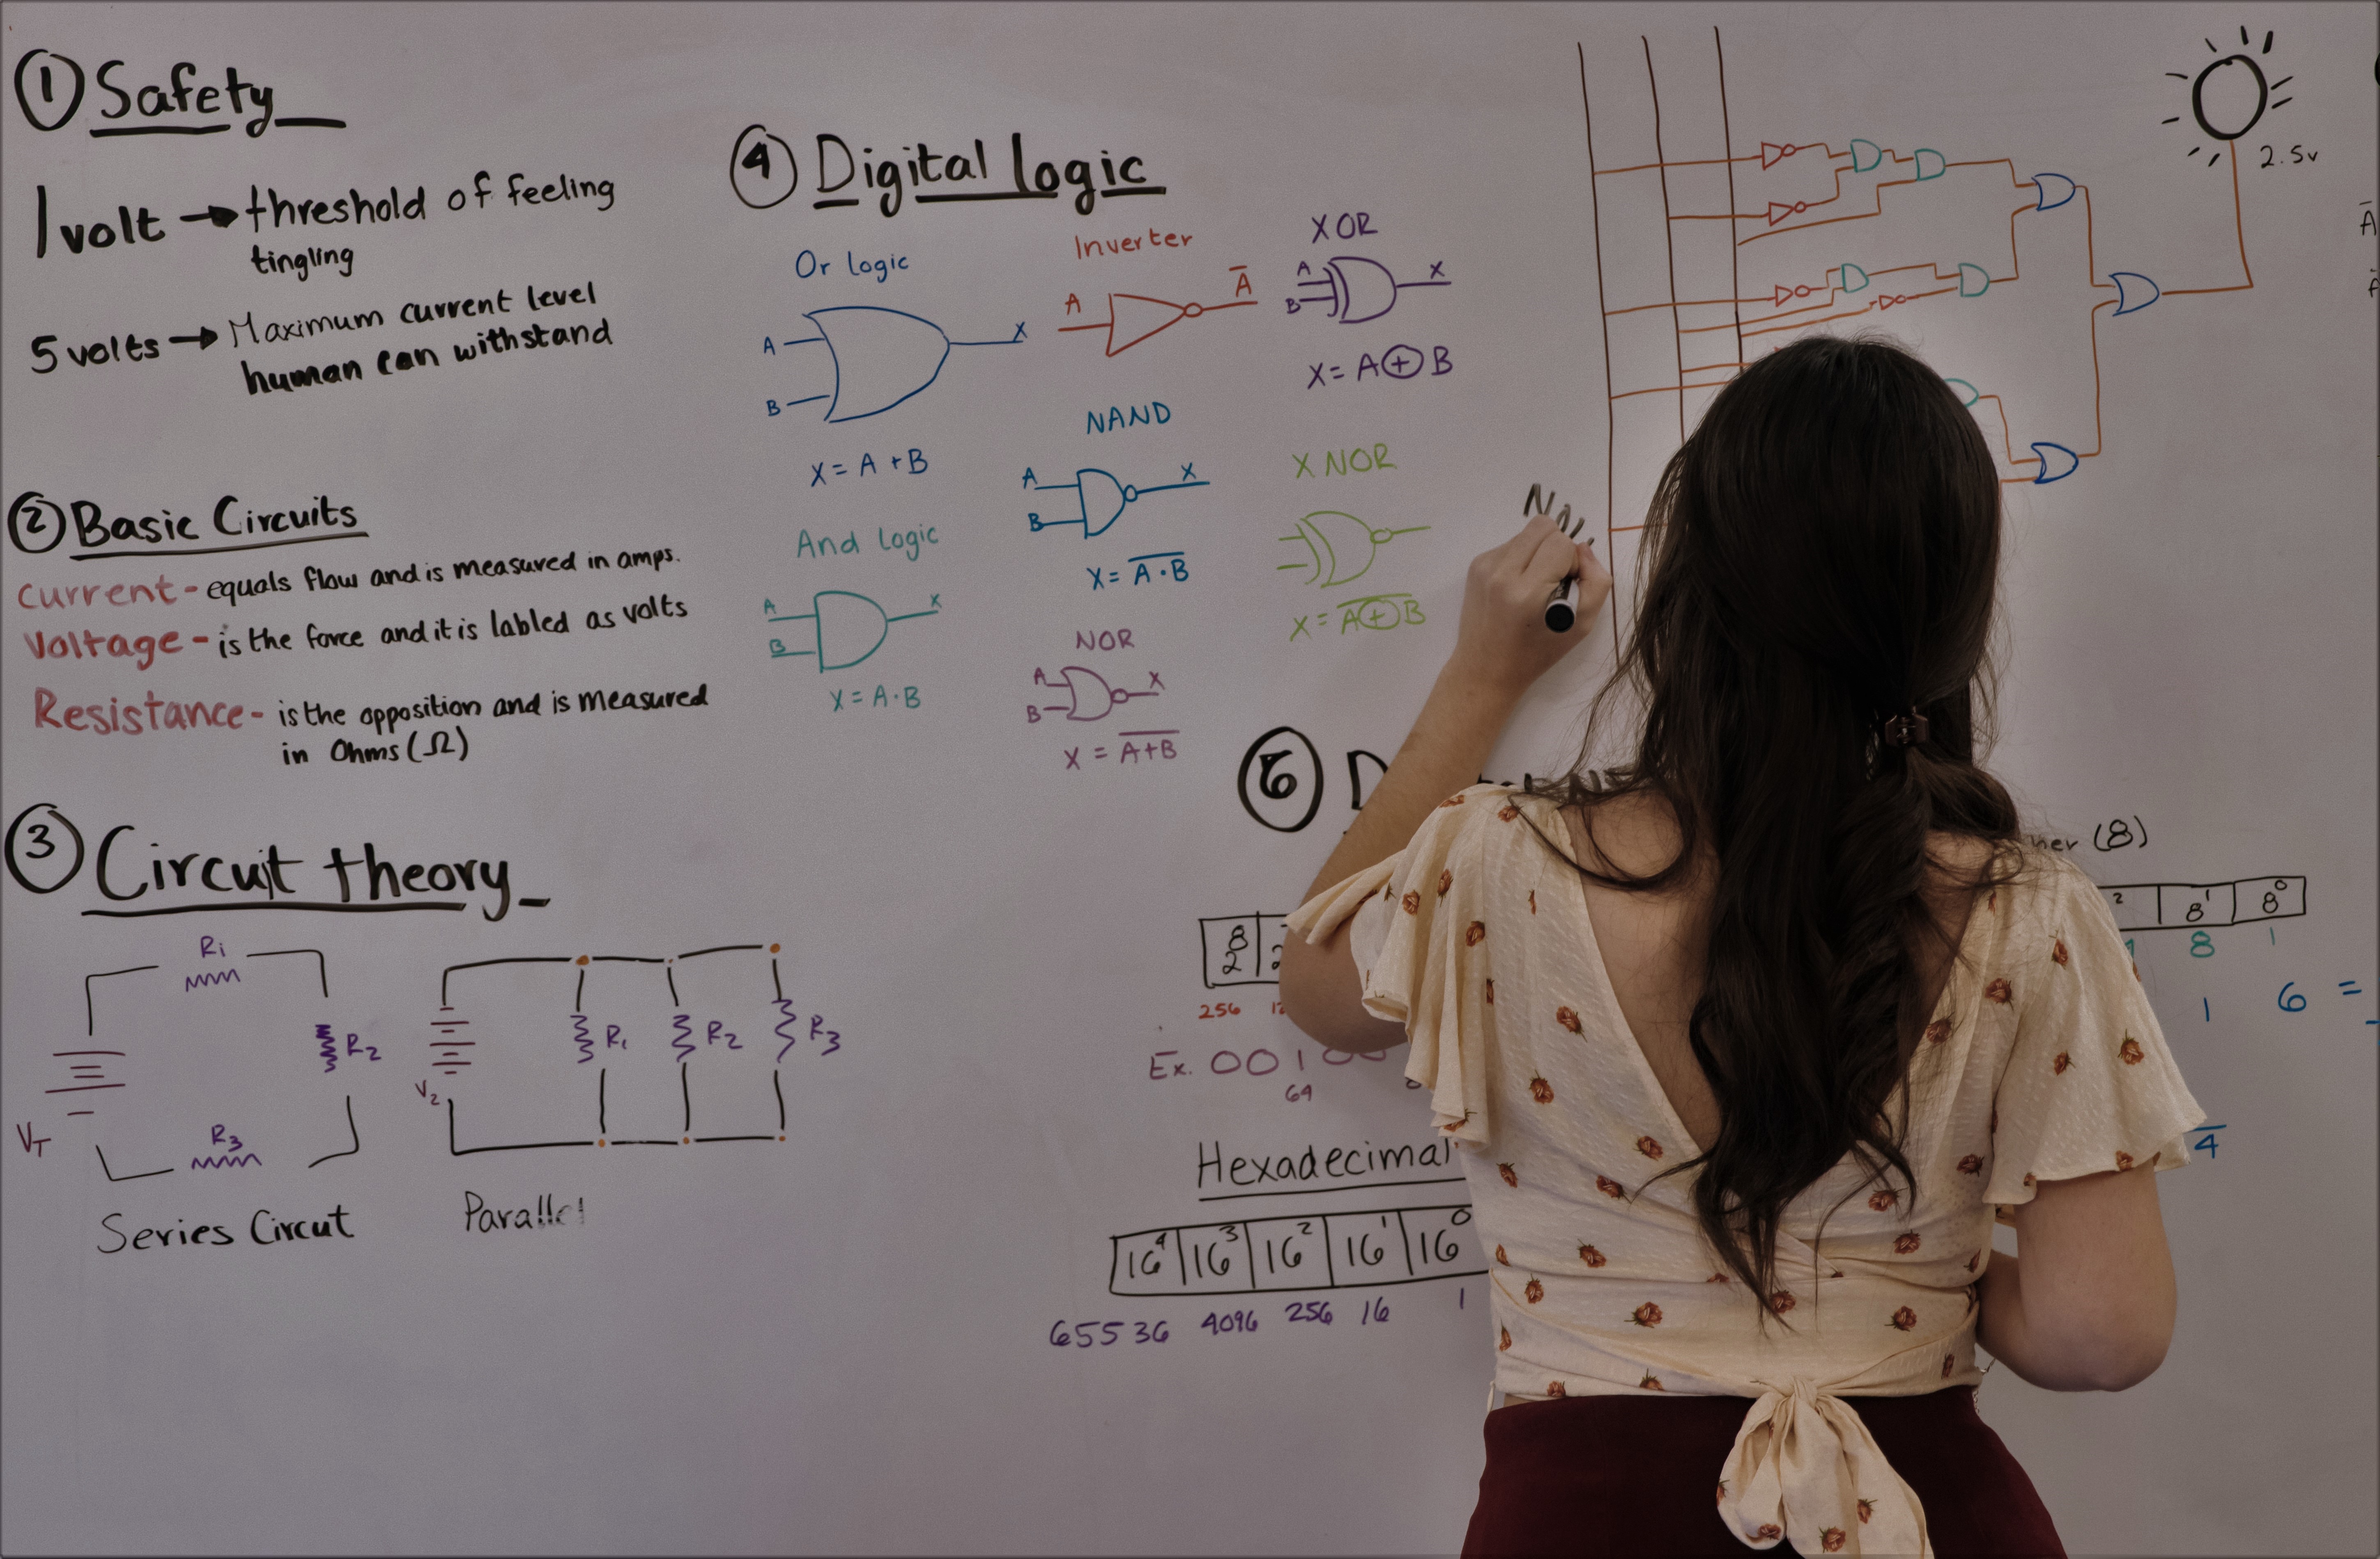 ① Safety
1 volt → threshold of feeling
tingling
5 volts → Maximum current level
human can withstand
② Basic Circuits
current - equals flow and is measured in amps.
Voltage - is the force and it is labled as volts
Resistance - is the opposition and is measured
in Ohms (Ω)
③ Circuit theory
R1
R2
R3
VT
Series Circut
R1
R2
R3
V2
Parallel
④ Digital logic
Or logic
A
B
X
X = A + B
And Logic
A
B
X
X = A · B
Inverter
A
A̅
NAND
A
B
X
X = A̅ ̅·̅ ̅B̅
NOR
A
B
X
X = A̅+̅B̅
XOR
A
B
X
X = A ⊕ B
X NOR
X = A̅ ̅⊕̅ ̅B̅
2.5v
A̅
(8)
8¹ 8⁰
8 1
1 6 =
4
256
Ex. 0 0 1 0 0
64
Hexadecimal
16⁴ 16³ 16² 16¹ 16⁰
65536 4096 256 16 1